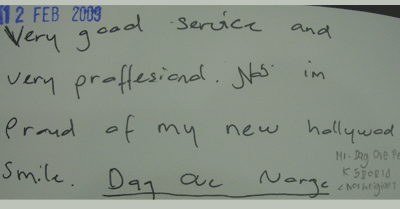 12 FEB 2009
Very good service and
very proffesional. Now im
Proud of my new hollywod
Smile. Dag Ove Norge
Mr. Dag Ove